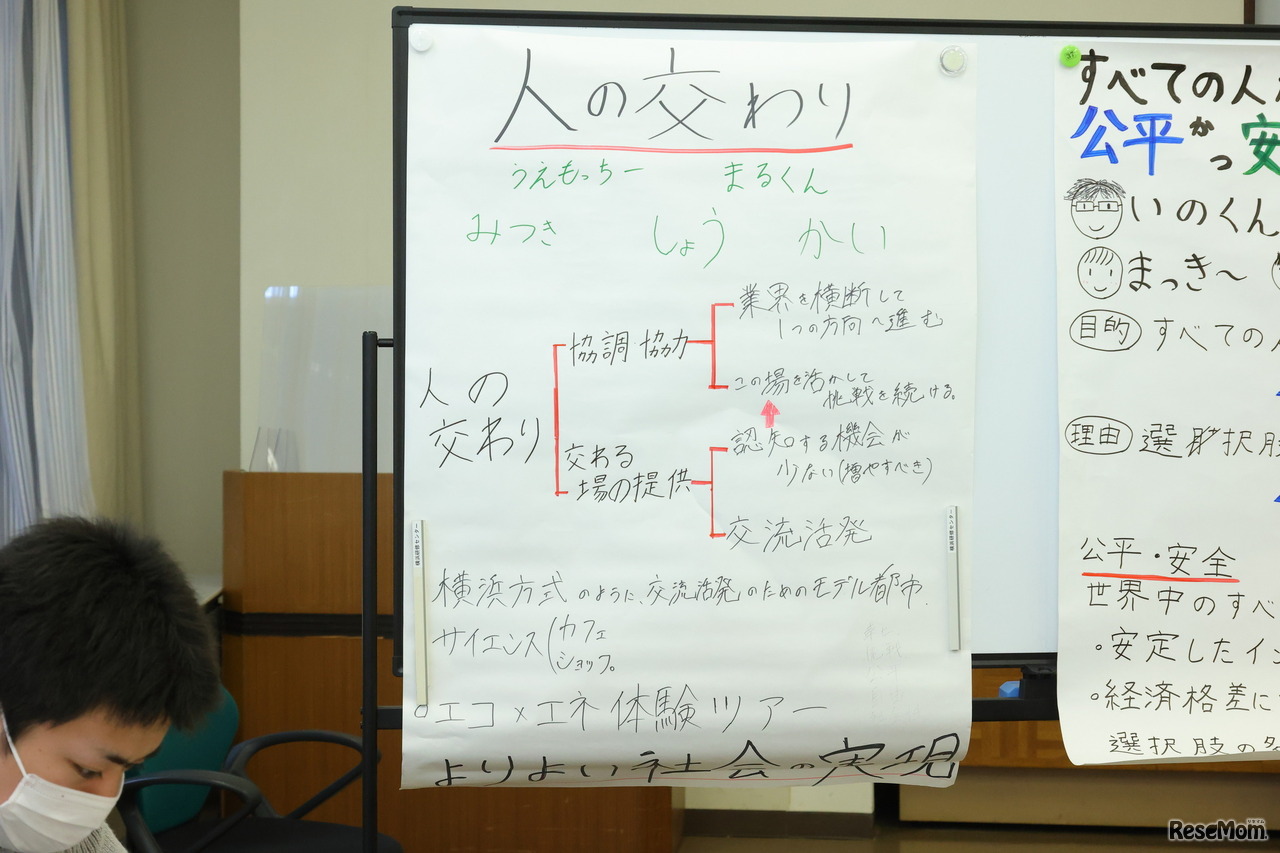 人の交わり
うえもっちー まるくん
みつき しょう かい
人の
交わり
協調・協力
業界を横断して
1つの方向へ進む
この場を活かして
挑戦を続ける。
交わる
場の提供
認知する機会が
少ない(増やすべき)
交流活発
横浜方式のように、交流活発のためのモデル都市.
サイエンス(カフェ
ショップ。
○エコ×エネ体験ツアー
よりよい社会の実現
すべての人
公平かつ安
いのくん
まっき〜
目的 すべての
理由 選択肢
公平・安全
世界中のすべ
・安定したイ
・経済格差に
選択肢の
ReseMom.